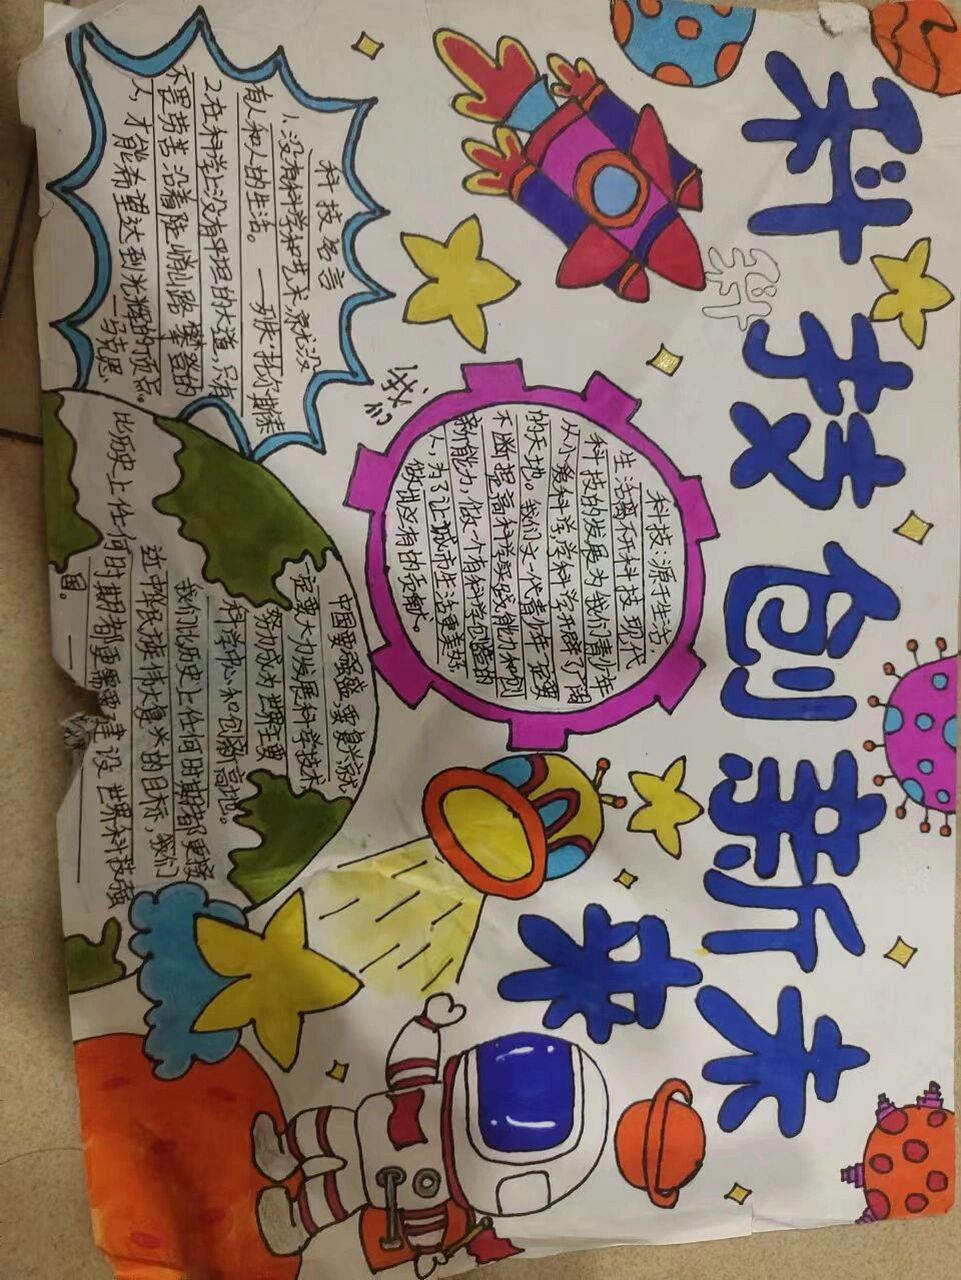 科技创新未
来
科技名言
1、没有科学和艺术,就没
有人和人的生活。——列夫·托尔斯泰
2在科学上没有平坦的大道,只有
不畏劳苦沿着陡峭山路攀登的
人,才能希望达到光辉的顶点。——马克思
科技:源于生活,
生活离不开科技,现代
科技的发展为我们青少年
从小爱科学,学科学开辟了广阔
的天地。我们又一代青少年定要
不断提高科学实践能力和创
新能力,做一个有科学创造的
人,为了让城市生活更美好
做出没有的贡献。
中国要强盛,要复兴就
定要大力发展科学技术
努力成为世界主要
科学中心和创新高地。
我们比历史上任何时期都更接
近中华民族伟大复兴的目标,我们
比历史上任何时期都更需要建设世界科技强
国。